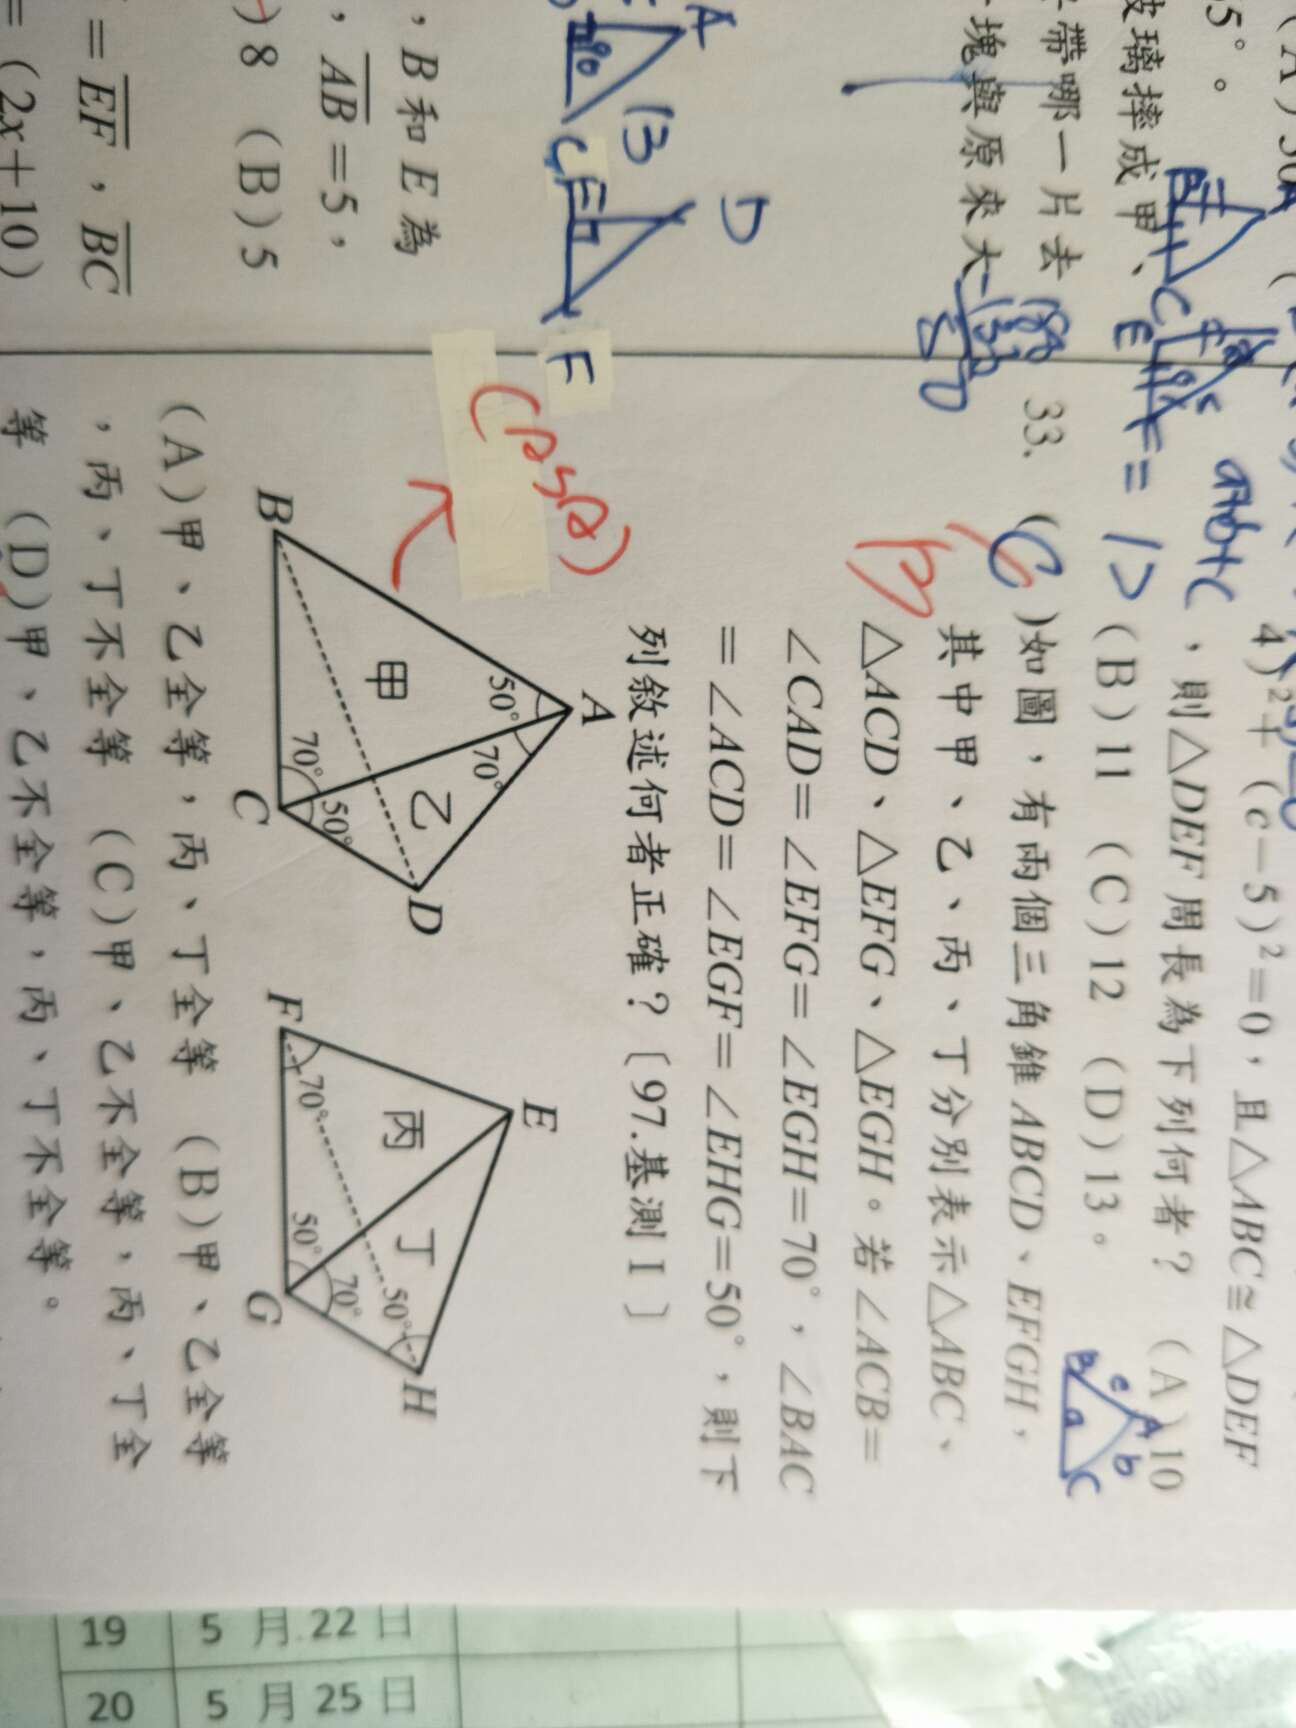 5°。
玻璃摔成甲、
帶哪一片去
塊與原來大
A
B
C
D
E
F
,B和E為
,AB=5,
8 (B)5
=EF,BC
=(2x+10)
a+b+c
4)²+(c-5)²=0,且△ABC≅△DEF
,則△DEF周長為下列何者? (A)10
(B)11 (C)12 (D)13。
=12
B
e
A
a
b
C
33. (C)如圖,有兩個三角錐ABCD、EFGH,
B
其中甲、乙、丙、丁分別表示△ABC、
△ACD、△EFG、△EGH。若∠ACB=
∠CAD=∠EFG=∠EGH=70°,∠BAC
=∠ACD=∠EGF=∠EHG=50°,則下
列敘述何者正確?〔97.基測1〕
A
50°
70°
甲
乙
B
70°
50°
C
D
E
丙
丁
F
70°
50°
70°
50°
G
H
(A)甲、乙全等,丙、丁全等 (B)甲、乙全等
,丙、丁不全等 (C)甲、乙不全等,丙、丁全
等 (D)甲、乙不全等,丙、丁不全等。
19 5月22日
20 5月25日